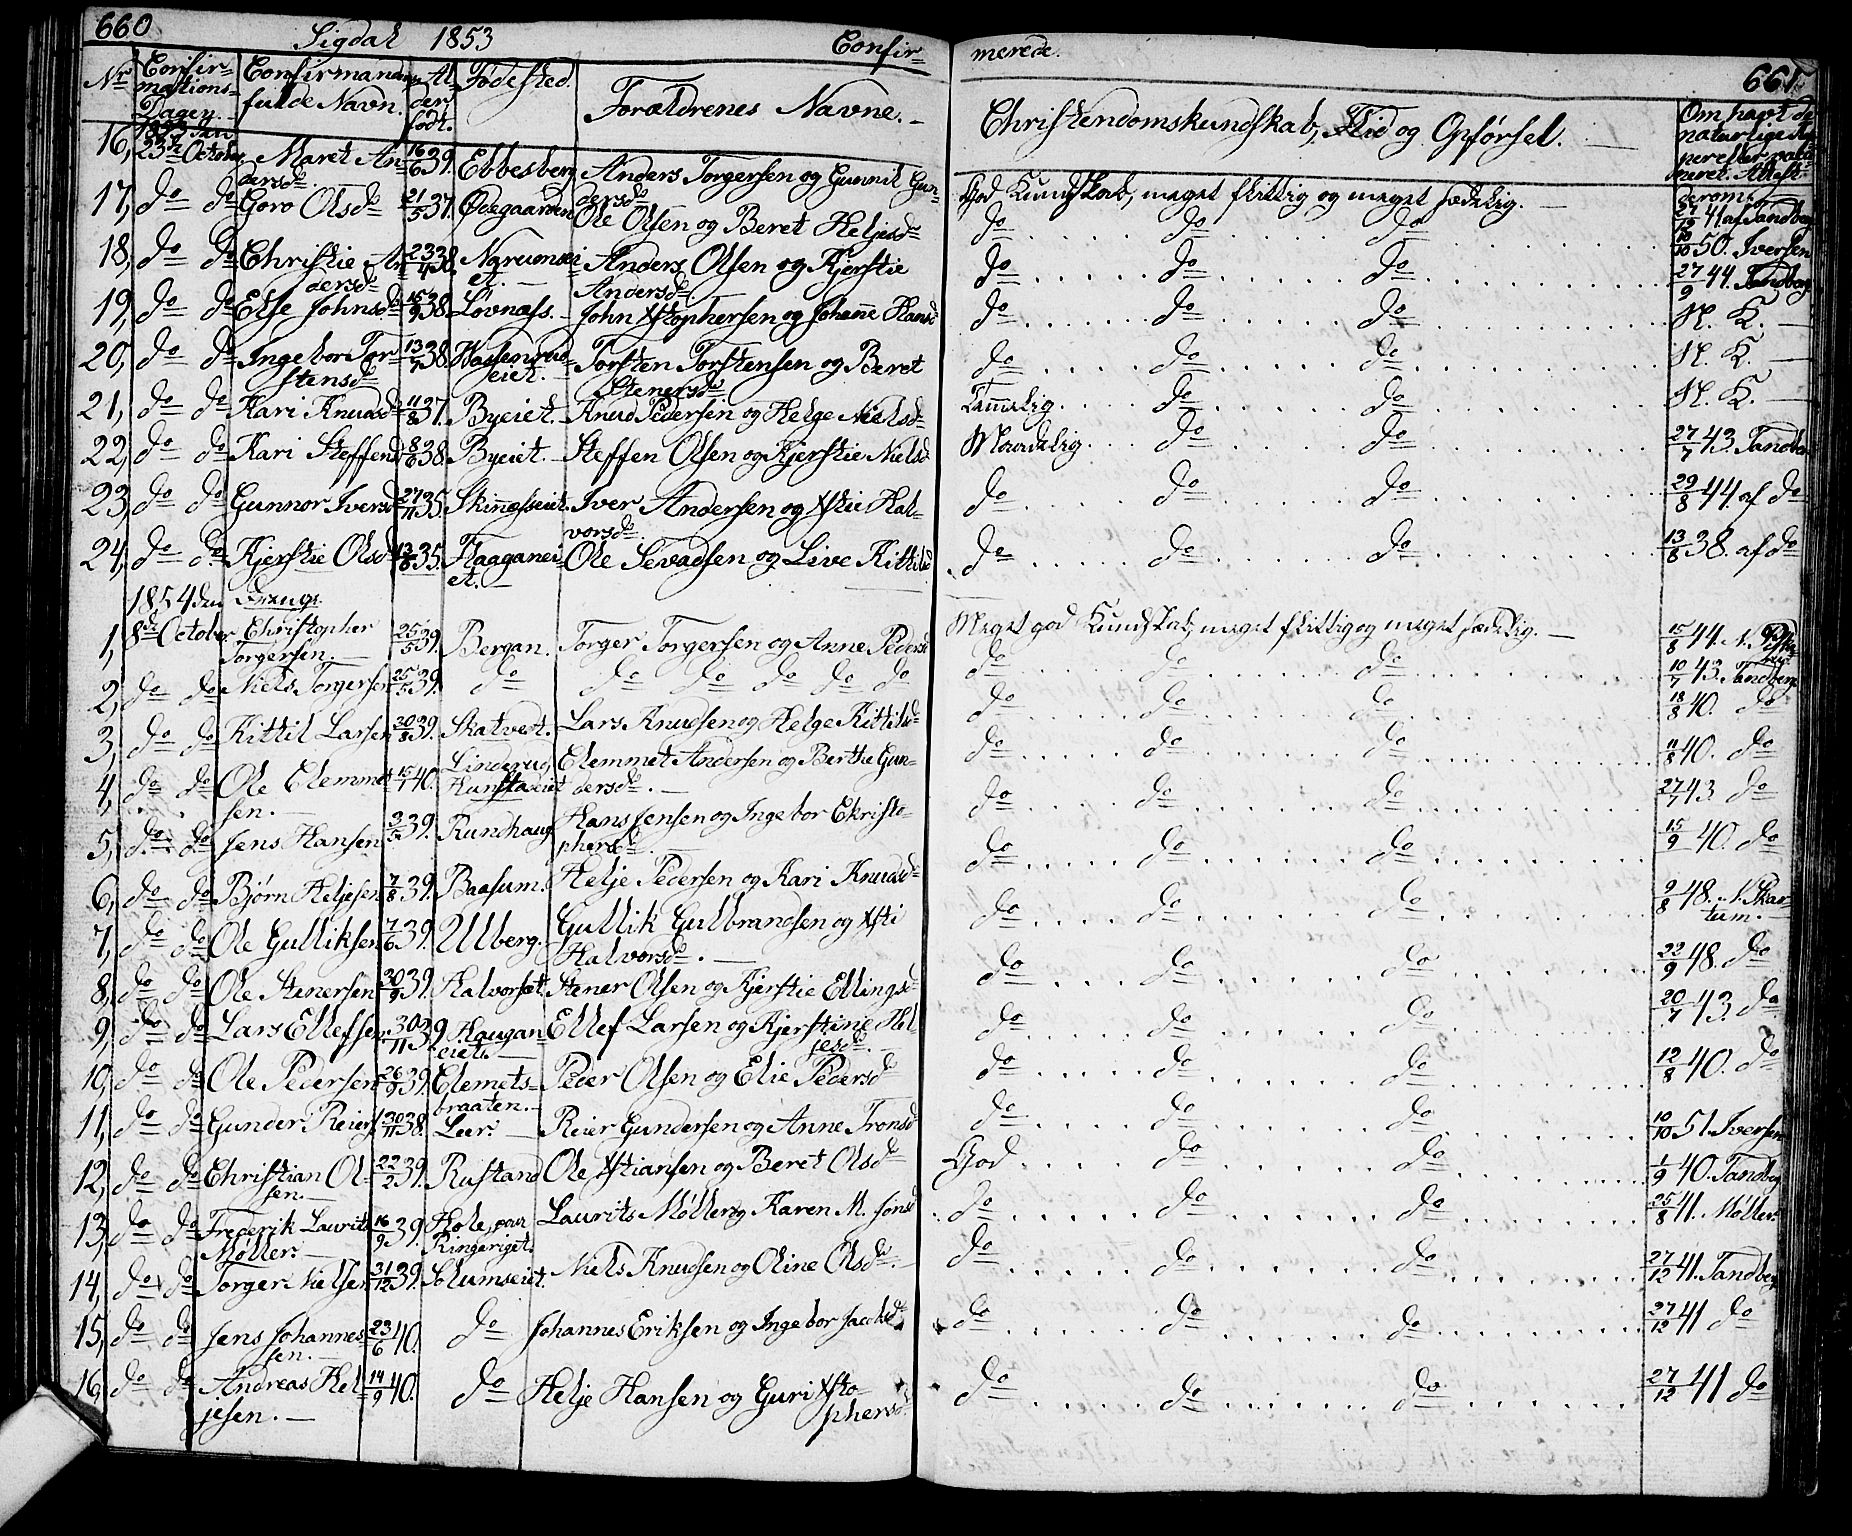 660 Sigdal 1853 Confir=
Nr Confir=mations=Dagen. Confirmandens fulde Navn. Alder født. Fødested. Forældrenes Navne.
16, 1853 den 23de October Maret Andersd. 16/6 39. Ebbesberg Anders Torgersen og Gunnil Gun=dersd.
17, do do Goro Olsd. 21/5 37. Ødegaarden Ole Olsen og Beret Heljesd.
18, do do Christie Andersd. Anders Olsen og Kjerstie Andersd.
19, do do Else Johnsd. 15/9 38. Lovnæss. John Xstophersen og Johanne Hansd.
20, do do Ingebor Torstensd. 13/7 38. Torsten Torstensen og Beret Stenersd.
21, do do Kari Knudsd. 11/8 37. Byeiet. Knud Pedersen og Helge Nielsd.
22, do do Kari Steffensd. 8/6 38. Byeiet. Steffen Olsen og Kjerstie Nielsd.
23, do do Gunnor Iversd. 27/11 35. Skinæsseiet. Iver Andersen og Xstie Hal=vorsd.
24, do do Kjerstie Olsd. 13/8 35. Haaganei=et. Ole Sevadsen og Live Kittilsd.
1854 den Drenge.
1, 8de October Christopher Torgersen. 25/5 39. Bergan. Torger Torgersen og Anne Pedersd.
2, do do Niels Torgersen 25/5 39. do do do do do do
3, do do Kittil Larsen 30/8 39. Skatvet. Lars Knudsen og Helge Kittilsd.
4, do do Ole Clemmetsen. 15/1 40. Linderud, Clemmet Andersen og Berthe Gun=dersd.
5, do do Jens Hansen 3/5 39. Rundhaug Hans Jensen og Ingebor Christo=phersd.
6, do do Bjørn Heljesen 7/8 39. Baasum. Helje Pedersen og Kari Knudsd.
7, do do Ole Gulliksen 7/6 39. Ulberg. Gullik Gulbrandsen og Xsti Halvorsd.
8, do do Ole Stenersen 30/9 39. Halvorset. Stener Olsen og Kjerstie Ellingsd.
9, do do Lars Ellefsen. 30/11 39 Haugan=eiet. Ellef Larsen og Kjerstine Hel=jesd.
10, do do Ole Pedersen 26/9 39. Clemets=braaten. Peder Olsen og Elie Pedersd.
11, do do Gunder Reiers. 30/11 38. Leer. Reier Gundersen og Anne Tronsd.
12, do do Christian Ol=sen. 22/2 39. Rustand Ole Xstiansen og Beret Olsd.
13, do do Frederik Laurits Møller. 16/9 39. Hole, paa Ringeriget. Laurits Møller og Karen M. Jonsd.
14, do do Torger Nielsen 31/12 39. Solumseiet. Niels Knudsen og Oline Olsd.
15, do do Jens Johannes=sen. 23/6 40. do Johannes Eriksen og Ingebor Jacobsd.
16, do do Andreas Hel=jesen. 14/9 40. do Helje Hansen og Guri Xsto=phersd.
merede. 661
Christendomskundskab, Flid og Opførsel. Om havt de naturlige
God Kundskab, meget flittig og meget sædelig. 27/12 41 af Tandberg
do do do 10/10 50. Iversen
do do do 27/9 44. Tandberg
do do do N. K.
do do do N. K.
Temmelig do do N. K.
Maadelig do do 27/7 43. Tandberg
do do do 29/8 44. af do
do do do 13/8 38. af do
Meget god Kundskab, meget flittig og meget sædelig. 15/8 44. N.
do do do 10/7 43. Tandberg
do do do 18/8 40. do
do do do 11/8 40. do
do do do 27/7 43. do
do do do 15/9 40. do
do do do 9/8 48. N. Skar=tum.
do do do 22/9 48. do
do do do 20/7 43. do
do do do 12/8 40. do
do do do 10/10 51. Iversen
God do do 1/9 40. Tandberg
do do do 25/8 41. Møller.
do do do 27/12 41. Tandberg
do do do 27/12 41 do
do do do 27/12 41 do